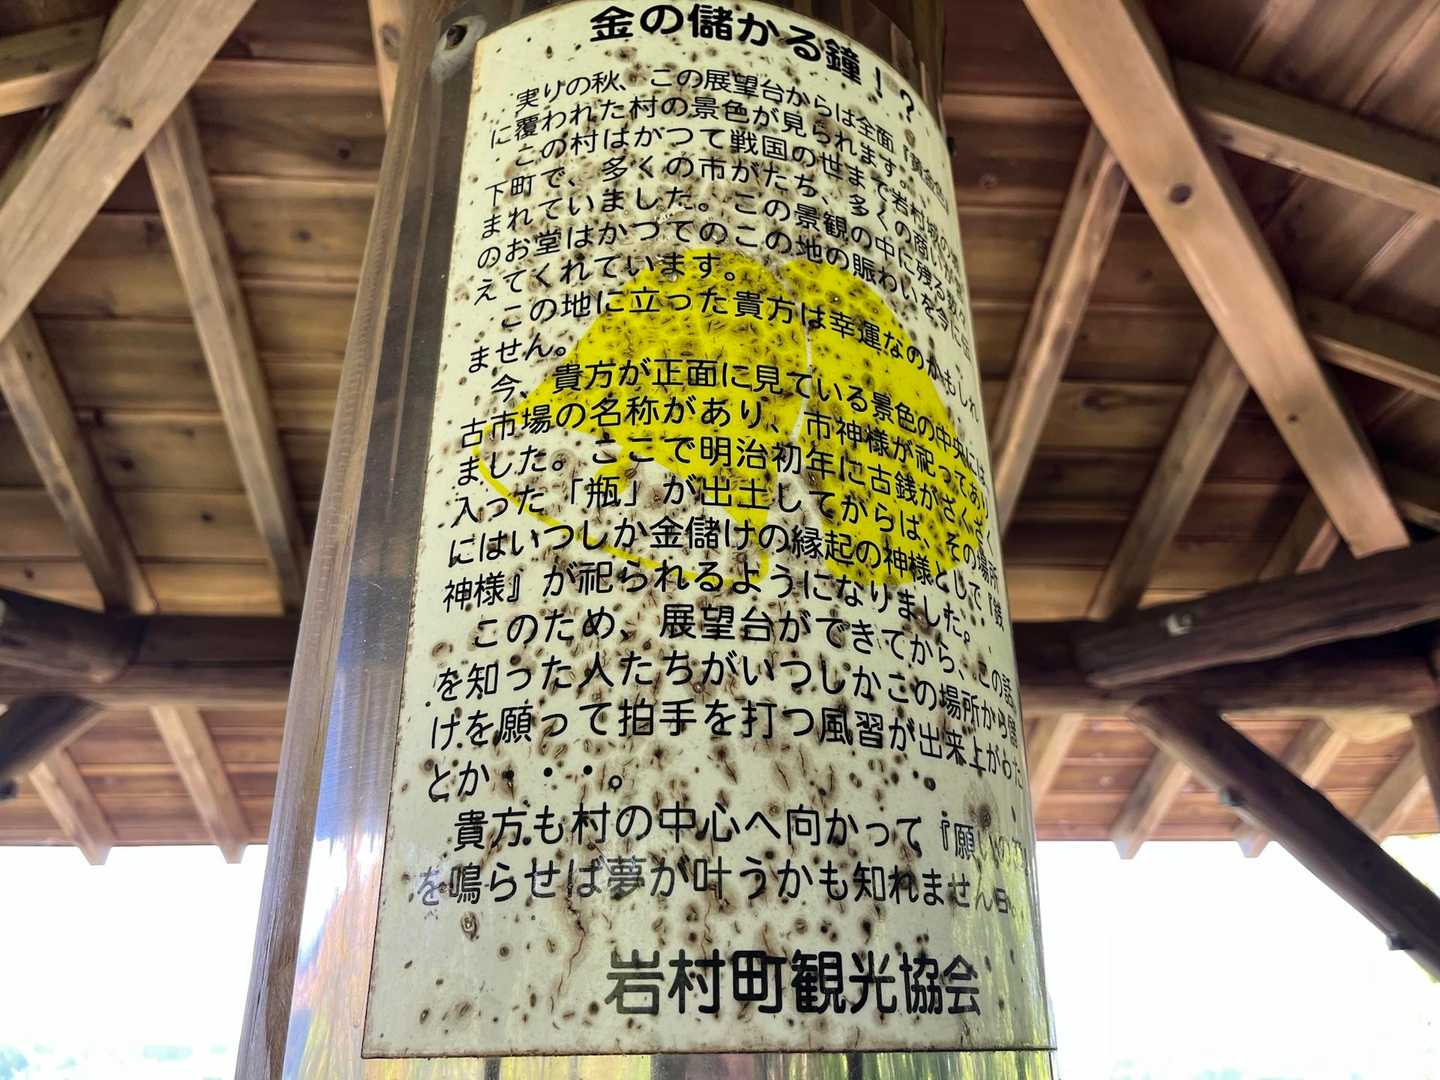 金の儲かる鐘！？
実りの秋、この展望台からは全面『黄金色』
に覆われた村の景色が見られます。
この村はかつて戦国の世まで岩村城の
下町で、多くの市がたち、多くの商いが
まれていました。この景観の中に残る数々
のお堂はかつてのこの地の賑わいを今に伝
えてくれています。
この地に立った貴方は幸運なのかもしれ
ません。
今、貴方が正面に見ている景色の中央には
古市場の名称があり、市神様が祀ってあり
ました。ここで明治初年に古銭がざくざく
入った「瓶」が出土してからは、その場所
にはいつしか金儲けの縁起の神様として『銭
神様』が祀られるようになりました。
このため、展望台ができてから、この話
を知った人たちがいつしかこの場所から儲
けを願って拍手を打つ風習が出来上がった
とか・・・。
貴方も村の中心へ向かって『願いの
を鳴らせば夢が叶うかも知れません
岩村町観光協会